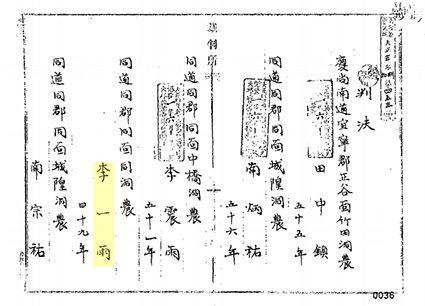 判決
慶尚南道宜寧郡正谷面竹田洞農
田中鎭
五十五年
同道同郡同面城隍洞農
南炳祐
五十六年
同道同郡同面中橋洞農
李震雨
五十一年
同道同郡同面同洞農
李一雨
四十九年
同道同郡同面城隍洞農
南宗祐
0036